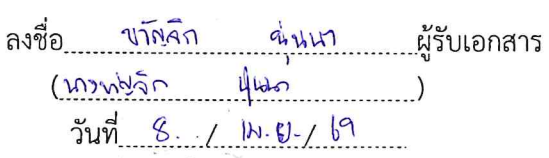 ลงชื่อ ขวัญจิก นุ่นนา ผู้รับเอกสาร
(นางขวัญจิก)
วันที่ 8 / เม.ย. / 69